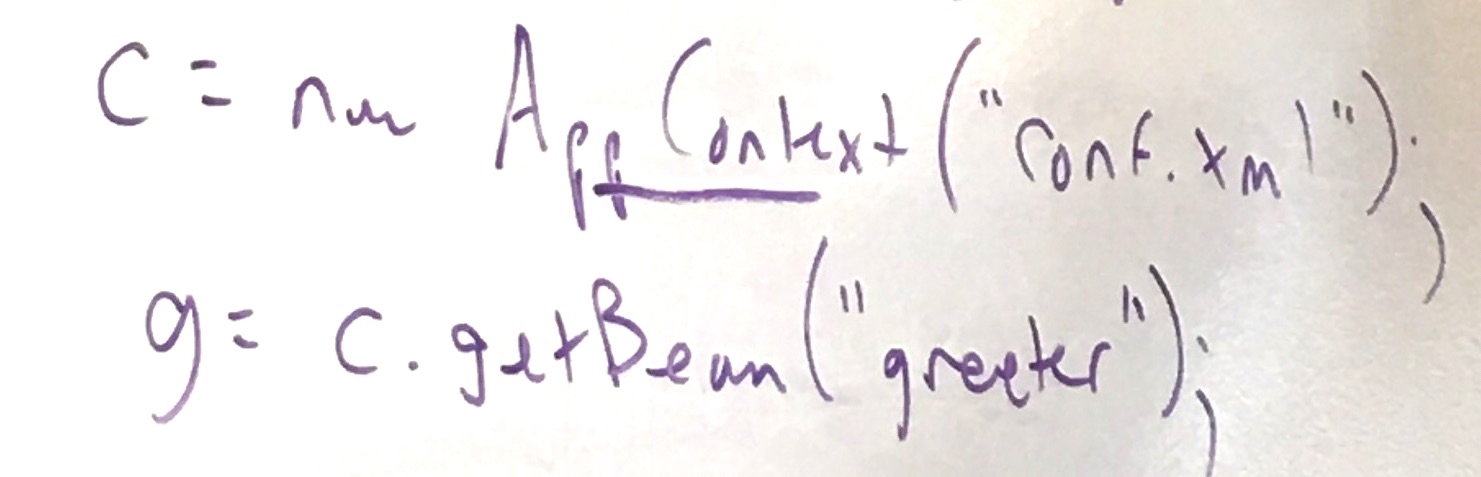 C = new AppContext("conf.xml");
g = c.getBean("greeter");